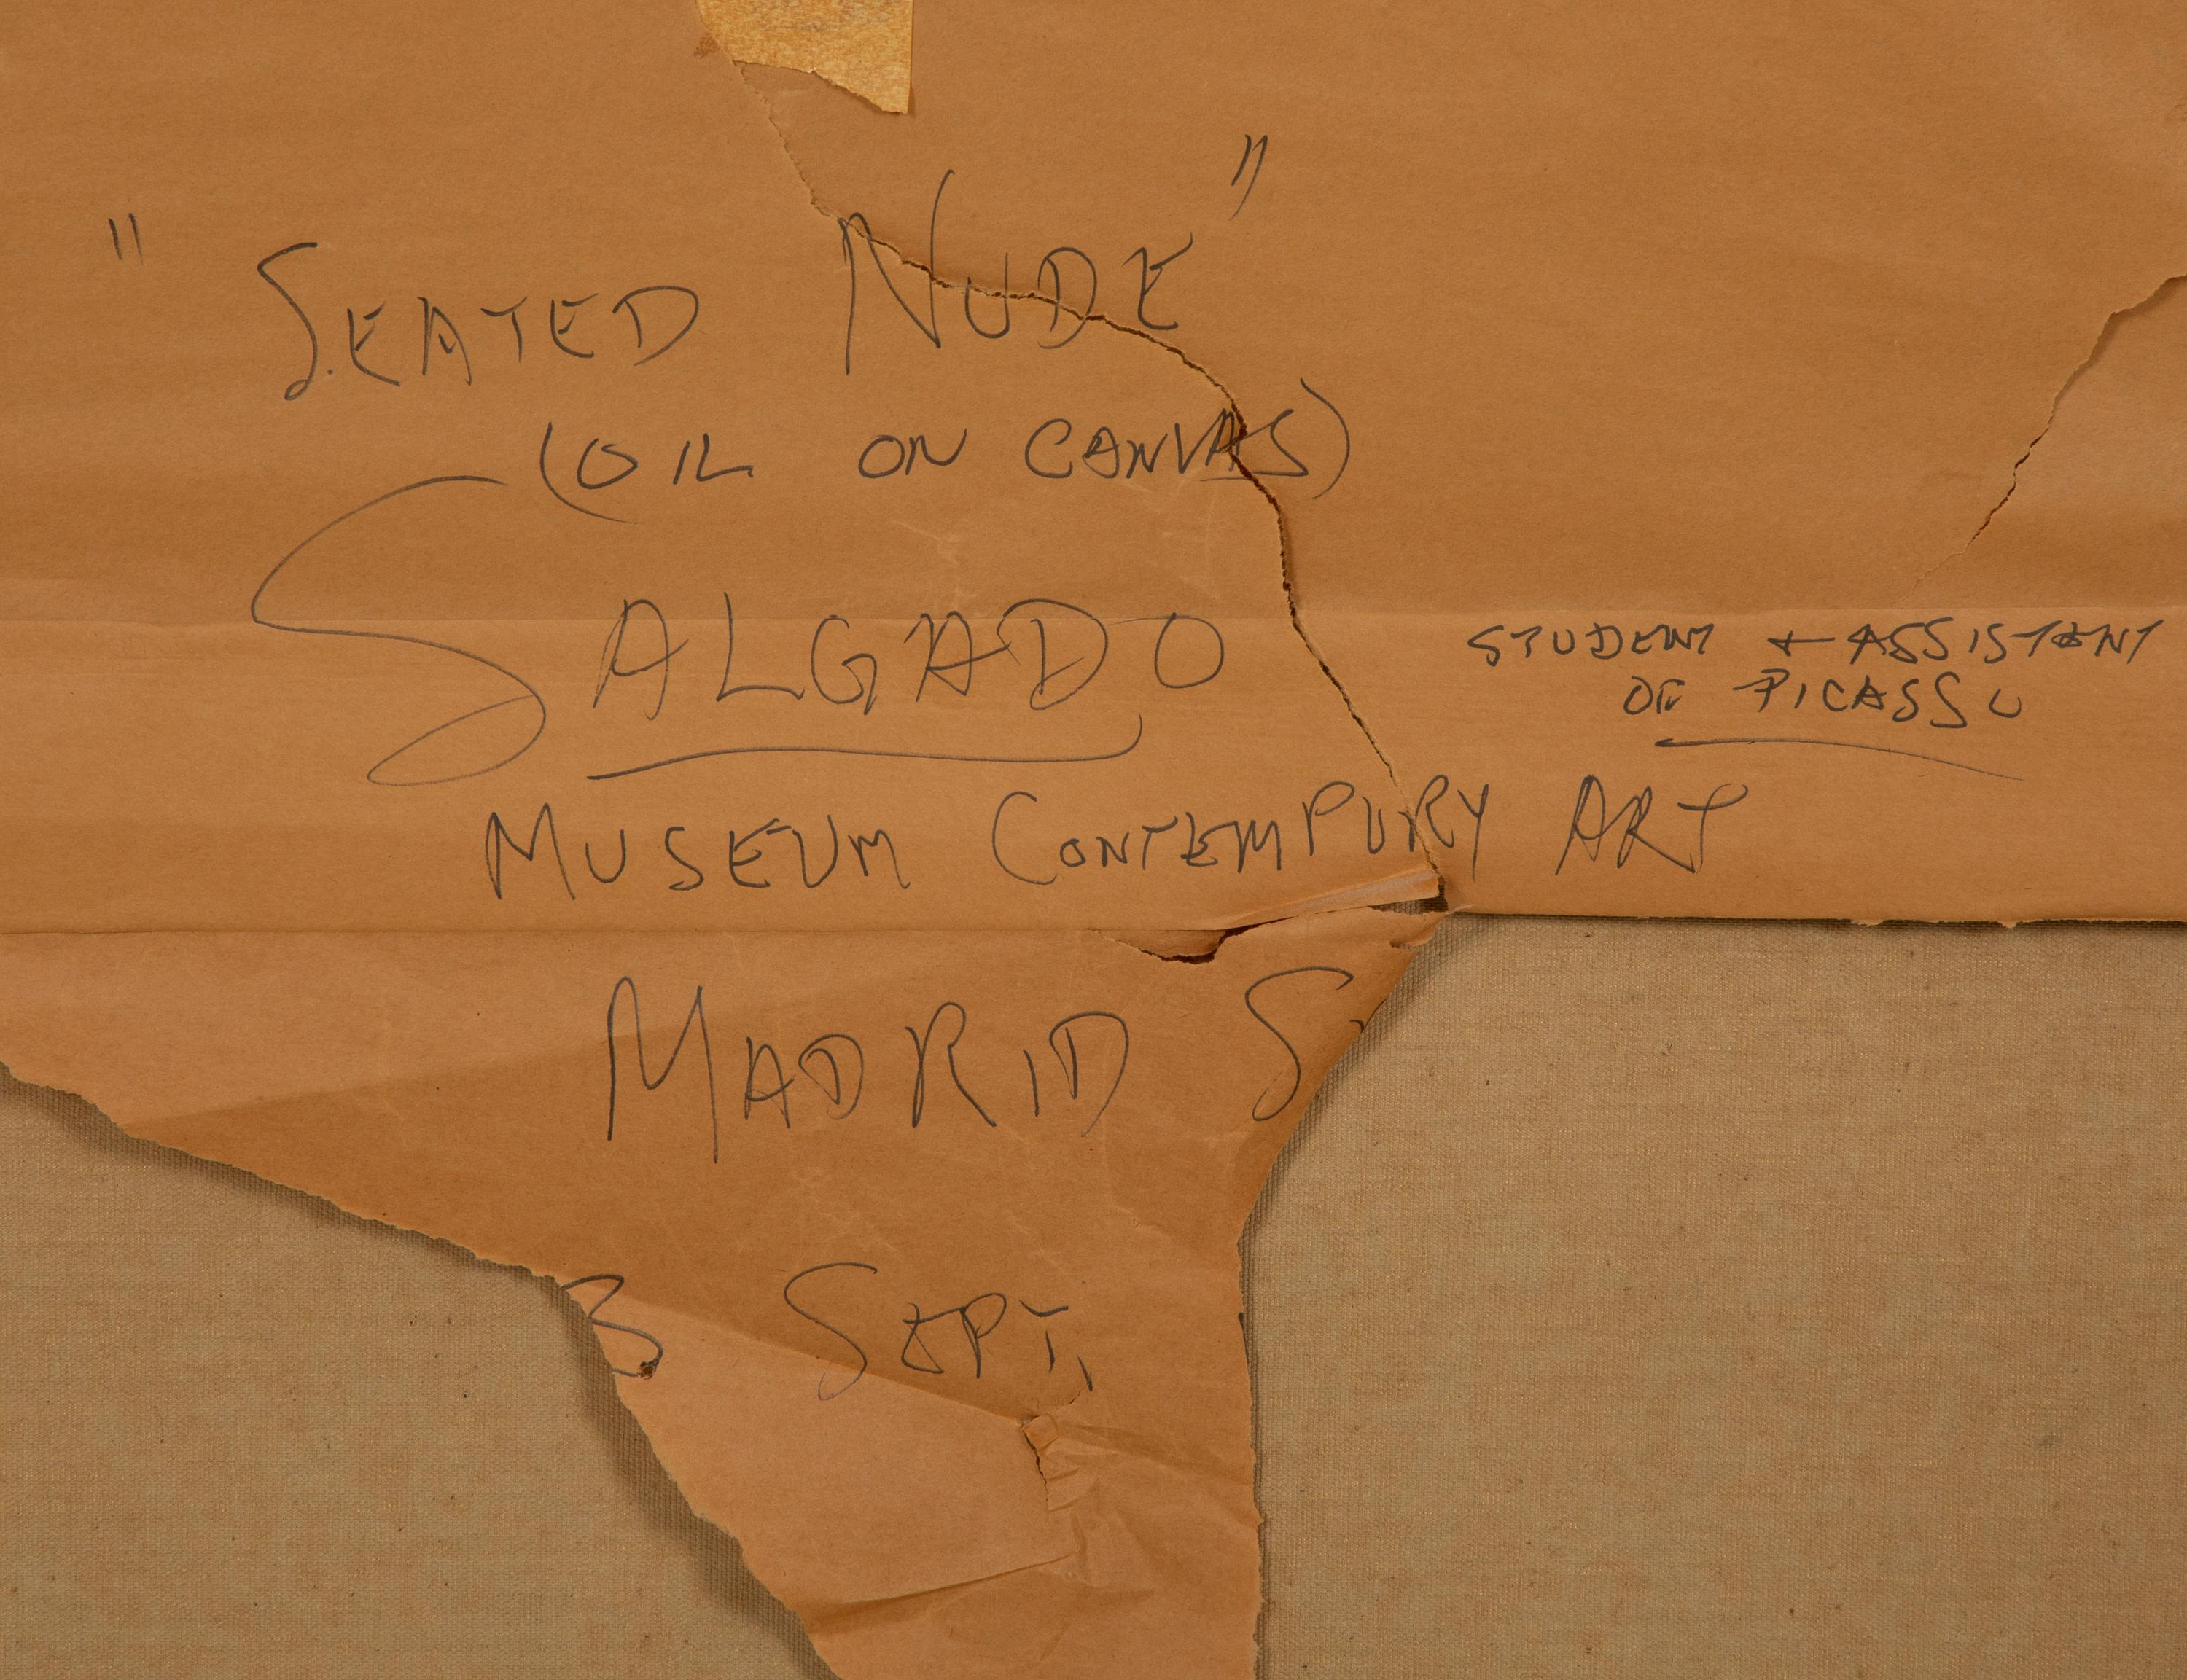 "SEATED NUDE"
(OIL ON CANVAS)
SALGADO
STUDENT + ASSISTENT
OF PICASSO
MUSEUM CONTEMPURY ART
MADRID S
3 SEPT.